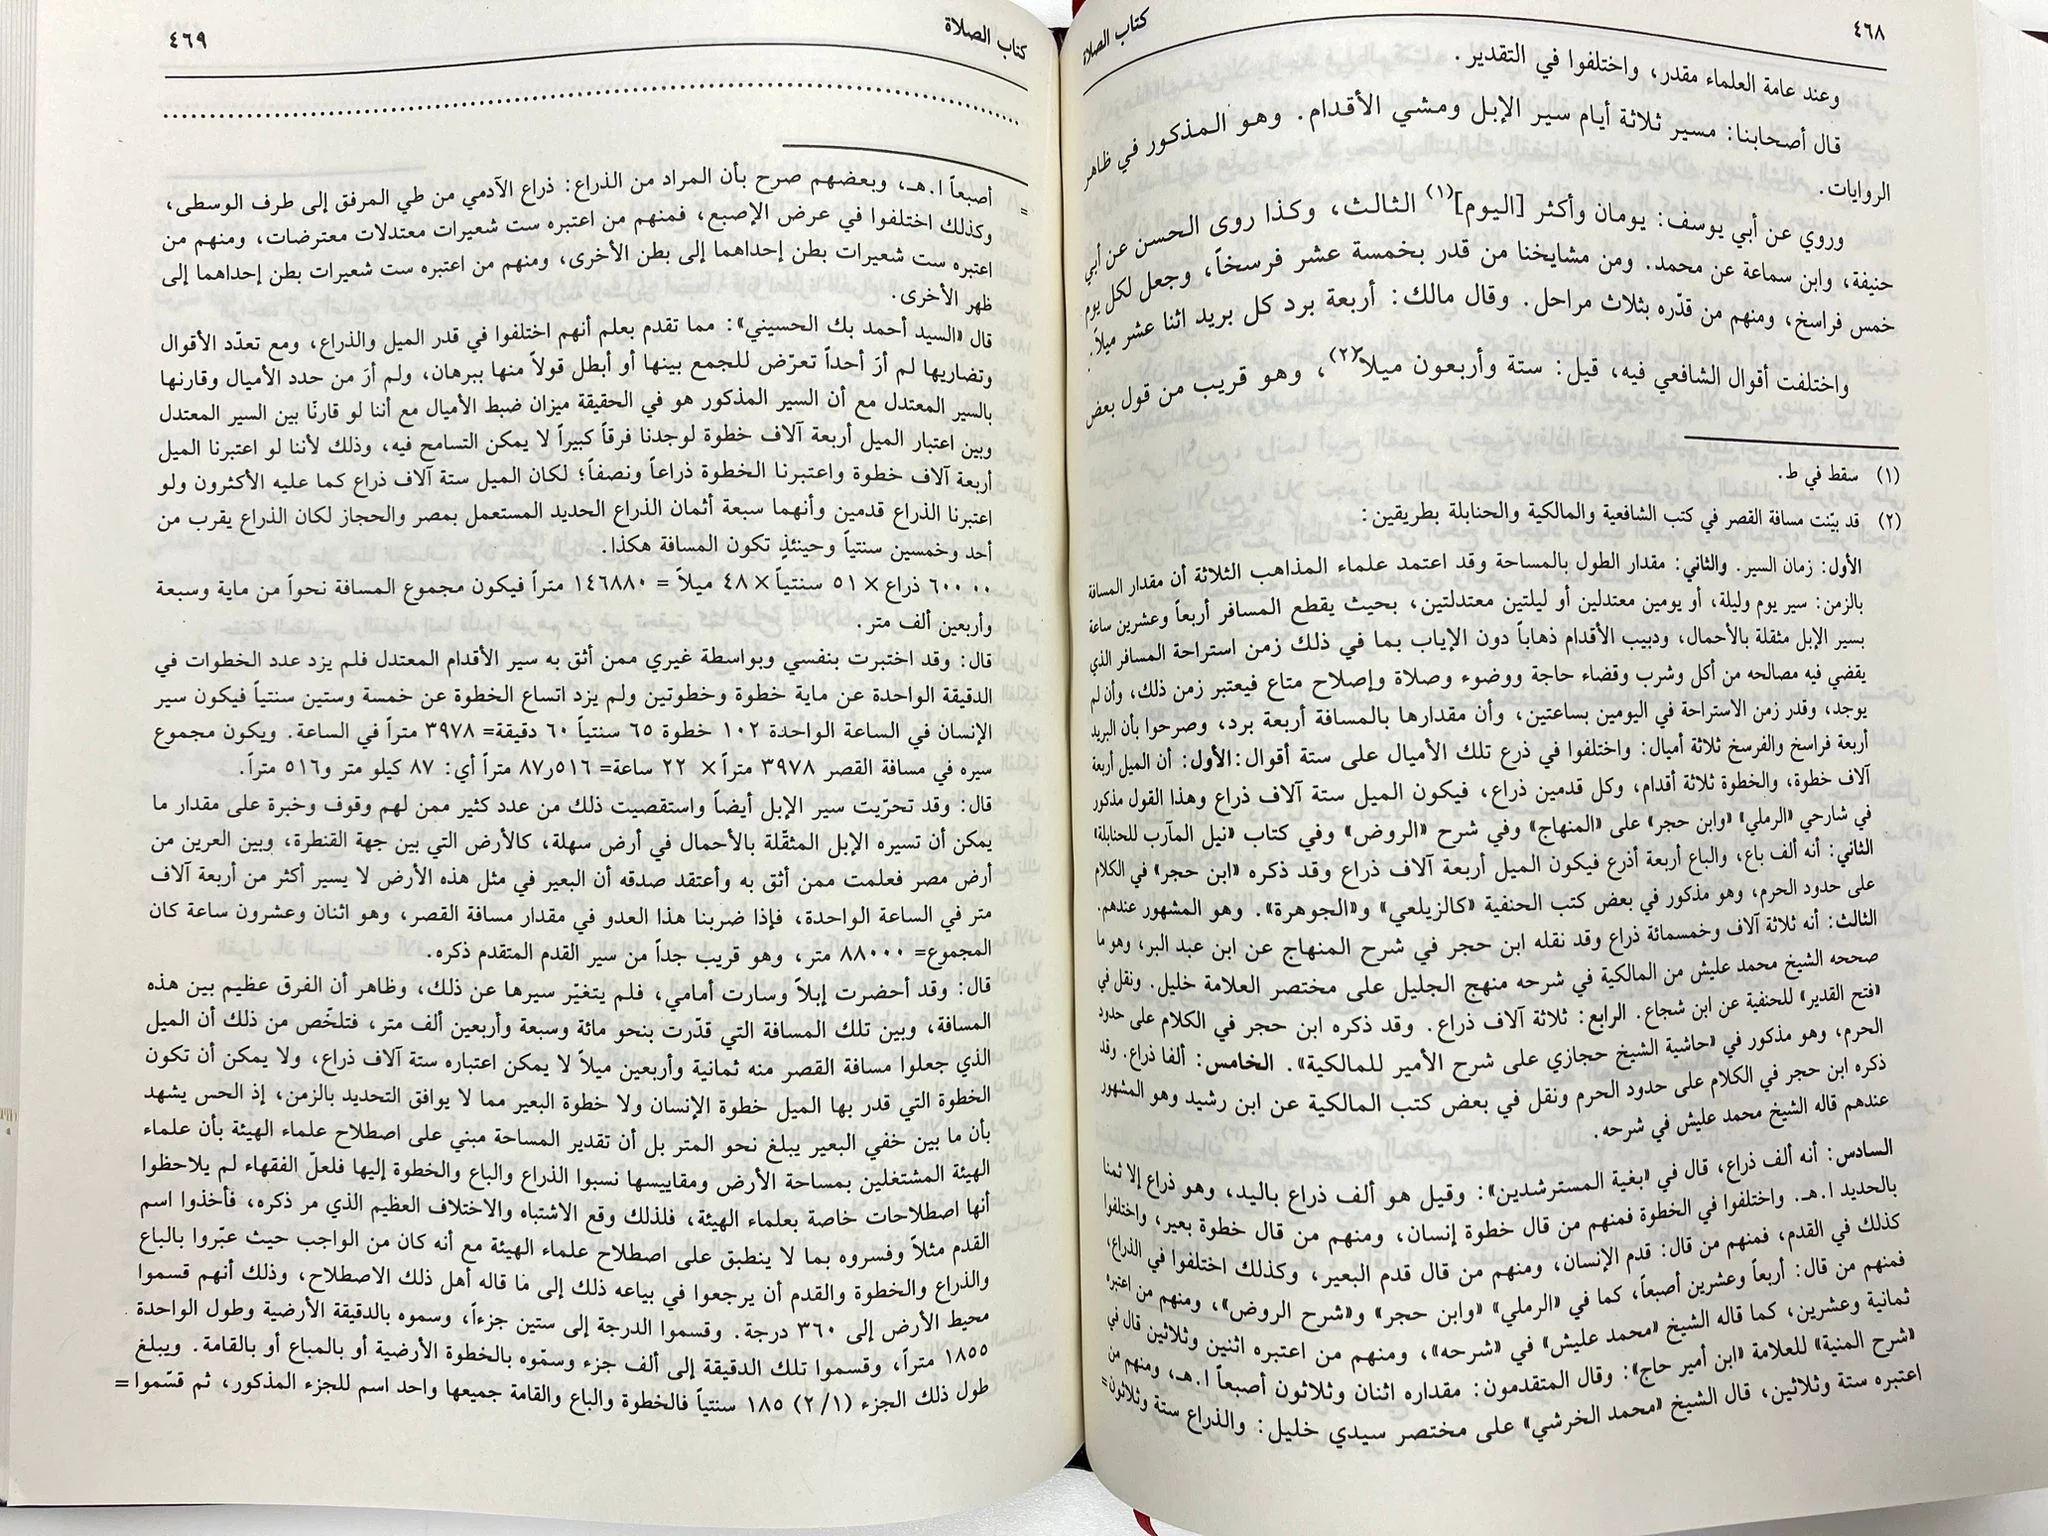 ٤٦٨
كتاب الصلاة
وعند عامة العلماء مقدر، واختلفوا في التقدير.
قال أصحابنا: مسير ثلاثة أيام سير الإبل ومشي الأقدام. وهو المذكور في ظاهر
الروايات.
وروي عن أبي يوسف: يومان وأكثر [اليوم](١) الثالث، وكذا روى الحسن عن أبي
حنيفة، وابن سماعة عن محمد. ومن مشايخنا من قدر بخمسة عشر فرسخاً، وجعل لكل يوم
خمس فراسخ، ومنهم من قدّره بثلاث مراحل. وقال مالك: أربعة برد كل بريد اثنا عشر ميلاً.
واختلفت أقوال الشافعي فيه، قيل: ستة وأربعون ميلاً(٢)، وهو قريب من قول بعض
(١) سقط في ط.
(٢) قد بيّنت مسافة القصر في كتب الشافعية والمالكية والحنابلة بطريقين:
الأول: زمان السير. والثاني: مقدار الطول بالمساحة وقد اعتمد علماء المذاهب الثلاثة أن مقدار المسافة
بالزمن: سير يوم وليلة، أو يومين معتدلين أو ليلتين معتدلتين، بحيث يقطع المسافر أربعاً وعشرين ساعة
بسير الإبل مثقلة بالأحمال، ودبيب الأقدام ذهاباً دون الإياب بما في ذلك زمن استراحة المسافر الذي
يقضي فيه مصالحه من أكل وشرب وقضاء حاجة ووضوء وصلاة وإصلاح متاع فيعتبر زمن ذلك، وأن لم
يوجد، وقدر زمن الاستراحة في اليومين بساعتين، وأن مقدارها بالمسافة أربعة برد، وصرحوا بأن البريد
أربعة فراسخ والفرسخ ثلاثة أميال: واختلفوا في ذرع تلك الأميال على ستة أقوال: الأول: أن الميل أربعة
آلاف خطوة، والخطوة ثلاثة أقدام، وكل قدمين ذراع، فيكون الميل ستة آلاف ذراع وهذا القول مذكور
في شارحي «الرملي» «وابن حجر» على «المنهاج» وفي شرح «الروض» وفي كتاب «نيل المآرب للحنابلة»
الثاني: أنه ألف باع، والباع أربعة أذرع فيكون الميل أربعة آلاف ذراع وقد ذكره «ابن حجر» في الكلام
على حدود الحرم، وهو مذكور في بعض كتب الحنفية «كالزيلعي» و«الجوهرة». وهو المشهور عندهم.
الثالث: أنه ثلاثة آلاف وخمسمائة ذراع وقد نقله ابن حجر في شرح المنهاج عن ابن عبد البر، وهو ما
صححه الشيخ محمد عليش من المالكية في شرحه منهج الجليل على مختصر العلامة خليل. ونقل في
«فتح القدير» للحنفية عن ابن شجاع. الرابع: ثلاثة آلاف ذراع. وقد ذكره ابن حجر في الكلام على حدود
الحرم، وهو مذكور في «حاشية الشيخ حجازي على شرح الأمير للمالكية». الخامس: ألفا ذراع. وقد
ذكره ابن حجر في الكلام على حدود الحرم ونقل في بعض كتب المالكية عن ابن رشيد وهو المشهور
عندهم قاله الشيخ محمد عليش في شرحه.
السادس: أنه ألف ذراع، قال في «بغية المسترشدين»: وقيل هو ألف ذراع باليد، وهو ذراع إلا ثمنا
بالحديد ا.هـ. واختلفوا في الخطوة فمنهم من قال خطوة إنسان، ومنهم من قال خطوة بعير، واختلفوا
كذلك في القدم، فمنهم من قال: قدم الإنسان، ومنهم من قال قدم البعير، وكذلك اختلفوا في الذراع،
فمنهم من قال: أربعاً وعشرين أصبعاً، كما في «الرملي» «وابن حجر» و«شرح الروض»، ومنهم من اعتبره
ثمانية وعشرين، كما قاله الشيخ «محمد عليش» في «شرحه»، ومنهم من اعتبره اثنين وثلاثين قال في
«شرح المنية» للعلامة «ابن أمير حاج»: وقال المتقدمون: مقداره اثنان وثلاثون أصبعاً ا.هـ، ومنهم من
اعتبره ستة وثلاثين، قال الشيخ «محمد الخرشي» على مختصر سيدي خليل: والذراع ستة وثلاثون=
كتاب الصلاة
٤٦٩
= أصبعاً ا.هـ، وبعضهم صرح بأن المراد من الذراع: ذراع الآدمي من طي المرفق إلى طرف الوسطى،
وكذلك اختلفوا في عرض الإصبع، فمنهم من اعتبره ست شعيرات معتدلات معترضات، ومنهم من
اعتبره ست شعيرات بطن إحداهما إلى بطن الأخرى، ومنهم من اعتبره ست شعيرات بطن إحداهما إلى
ظهر الأخرى.
قال «السيد أحمد بك الحسيني»: مما تقدم بعلم أنهم اختلفوا في قدر الميل والذراع، ومع تعدّد الأقوال
وتضاربها لم أرَ أحداً تعرّض للجمع بينها أو أبطل قولاً منها ببرهان، ولم أرَ من حدد الأميال وقارنها
بالسير المعتدل مع أن السير المذكور هو في الحقيقة ميزان ضبط الأميال مع أننا لو قارنّا بين السير المعتدل
وبين اعتبار الميل أربعة آلاف خطوة لوجدنا فرقاً كبيراً لا يمكن التسامح فيه، وذلك لأننا لو اعتبرنا الميل
أربعة آلاف خطوة واعتبرنا الخطوة ذراعاً ونصفاً؛ لكان الميل ستة آلاف ذراع كما عليه الأكثرون ولو
اعتبرنا الذراع قدمين وأنهما سبعة أثمان الذراع الحديد المستعمل بمصر والحجاز لكان الذراع يقرب من
أحد وخمسين سنتياً وحينئذٍ تكون المسافة هكذا.
٦٠٠٠٠ ذراع × ٥١ سنتياً × ٤٨ ميلاً = ١٤٦٨٨٠ متراً فيكون مجموع المسافة نحواً من ماية وسبعة
وأربعين ألف متر.
قال: وقد اختبرت بنفسي وبواسطة غيري ممن أثق به سير الأقدام المعتدل فلم يزد عدد الخطوات في
الدقيقة الواحدة عن ماية خطوة وخطوتين ولم يزد اتساع الخطوة عن خمسة وستين سنتياً فيكون سير
الإنسان في الساعة الواحدة ١٠٢ خطوة ٦٥ سنتياً ٦٠ دقيقة= ٣٩٧٨ متراً في الساعة. ويكون مجموع
سيره في مسافة القصر ٣٩٧٨ متراً × ٢٢ ساعة= ٥١٦ر٨٧ متراً أي: ٨٧ كيلو متر و٥١٦ متراً.
قال: وقد تحرّيت سير الإبل أيضاً واستقصيت ذلك من عدد كثير ممن لهم وقوف وخبرة على مقدار ما
يمكن أن تسيره الإبل المثقّلة بالأحمال في أرض سهلة، كالأرض التي بين جهة القنطرة، وبين العرين من
أرض مصر فعلمت ممن أثق به وأعتقد صدقه أن البعير في مثل هذه الأرض لا يسير أكثر من أربعة آلاف
متر في الساعة الواحدة، فإذا ضربنا هذا العدو في مقدار مسافة القصر، وهو اثنان وعشرون ساعة كان
المجموع= ٨٨٠٠٠ متر، وهو قريب جداً من سير القدم المتقدم ذكره.
قال: وقد أحضرت إبلاً وسارت أمامي، فلم يتغيّر سيرها عن ذلك، وظاهر أن الفرق عظيم بين هذه
المسافة، وبين تلك المسافة التي قدّرت بنحو مائة وسبعة وأربعين ألف متر، فتلخّص من ذلك أن الميل
الذي جعلوا مسافة القصر منه ثمانية وأربعين ميلاً لا يمكن اعتباره ستة آلاف ذراع، ولا يمكن أن تكون
الخطوة التي قدر بها الميل خطوة الإنسان ولا خطوة البعير مما لا يوافق التحديد بالزمن، إذ الحس يشهد
بأن ما بين خفي البعير يبلغ نحو المتر بل أن تقدير المساحة مبني على اصطلاح علماء الهيئة بأن علماء
الهيئة المشتغلين بمساحة الأرض ومقاييسها نسبوا الذراع والباع والخطوة إليها فلعلّ الفقهاء لم يلاحظوا
أنها اصطلاحات خاصة بعلماء الهيئة، فلذلك وقع الاشتباه والاختلاف العظيم الذي مر ذكره، فأخذوا اسم
القدم مثلاً وفسروه بما لا ينطبق على اصطلاح علماء الهيئة مع أنه كان من الواجب حيث عبّروا بالباع
والذراع والخطوة والقدم أن يرجعوا في بياعه ذلك إلى ما قاله أهل ذلك الاصطلاح، وذلك أنهم قسموا
محيط الأرض إلى ٣٦٠ درجة. وقسموا الدرجة إلى ستين جزءاً، وسموه بالدقيقة الأرضية وطول الواحدة
١٨٥٥ متراً، وقسموا تلك الدقيقة إلى ألف جزء وسمّوه بالخطوة الأرضية أو بالمباع أو بالقامة. ويبلغ
طول ذلك الجزء (٢/١) ١٨٥ سنتياً فالخطوة والباع والقامة جميعها واحد اسم للجزء المذكور، ثم قسّموا=